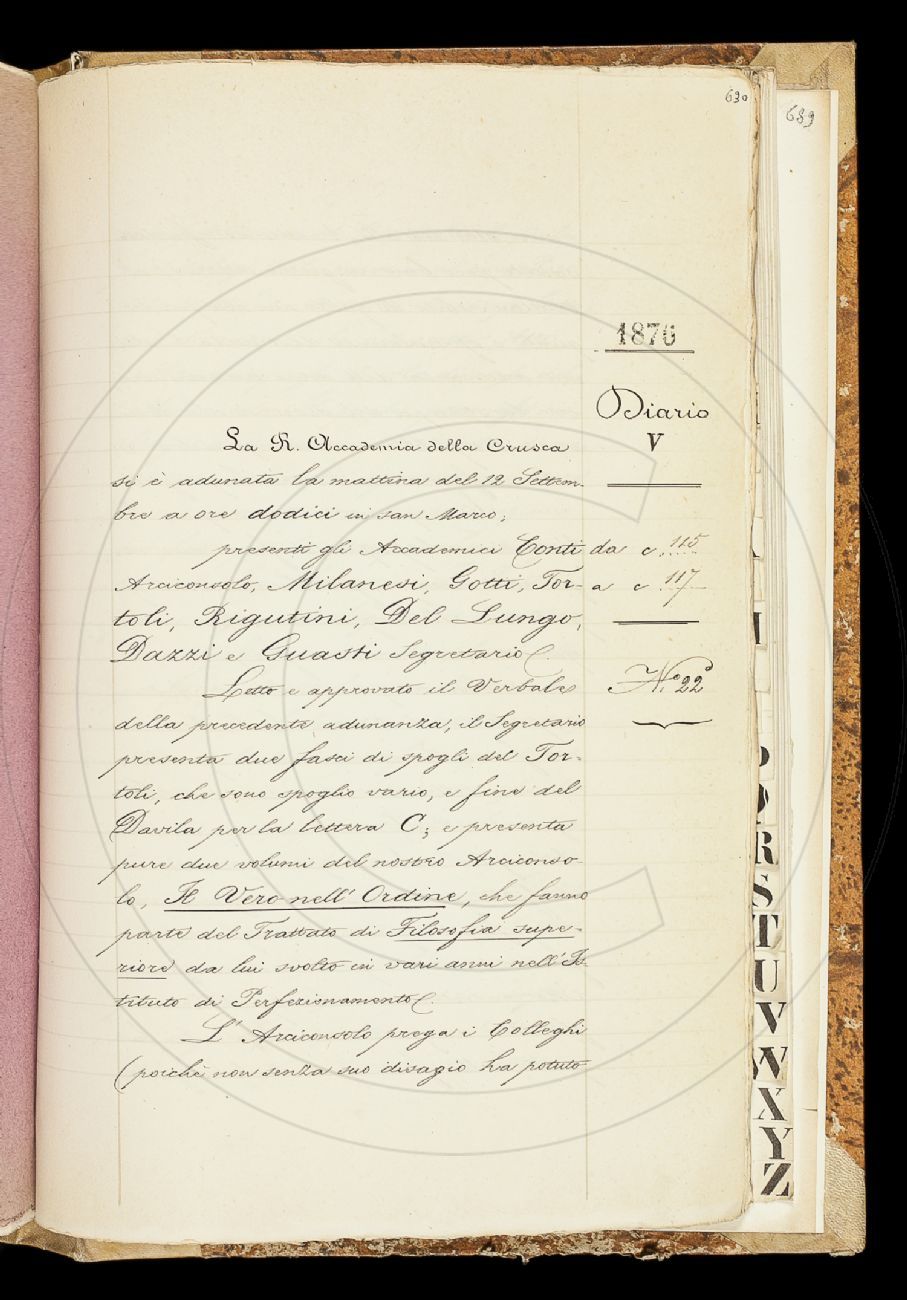 630
689
1876
Diario
V
La R. Accademia della Crusca
si è adunata la mattina del 12 Settem-
bre a ore dodici in san Marco;
presenti gli Accademici Conti
Arciconsolo, Milanesi, Gotti, Tor-
toli, Rigutini, Del Lungo,
Dazzi e Guasti Segretario.
da c. 115
a c. 117
N.º 22
Letto e approvato il Verbale
della precedente adunanza, il Segretario
presenta due fasci di spogli del Tor-
toli, che sono spoglio vario, e fine del
Davila per la lettera C; e presenta
pure due volumi del nostro Arciconso-
lo, Il Vero nell' Ordine, che fanno
parte del Trattato di Filosofia supe-
riore da lui svolto in vari anni nell' Is-
tituto di Perfezionamento.
L' Arciconsolo prega i Colleghi
(poichè non senza suo disagio ha potuto
R
S
T
U
V
W
X
Y
Z